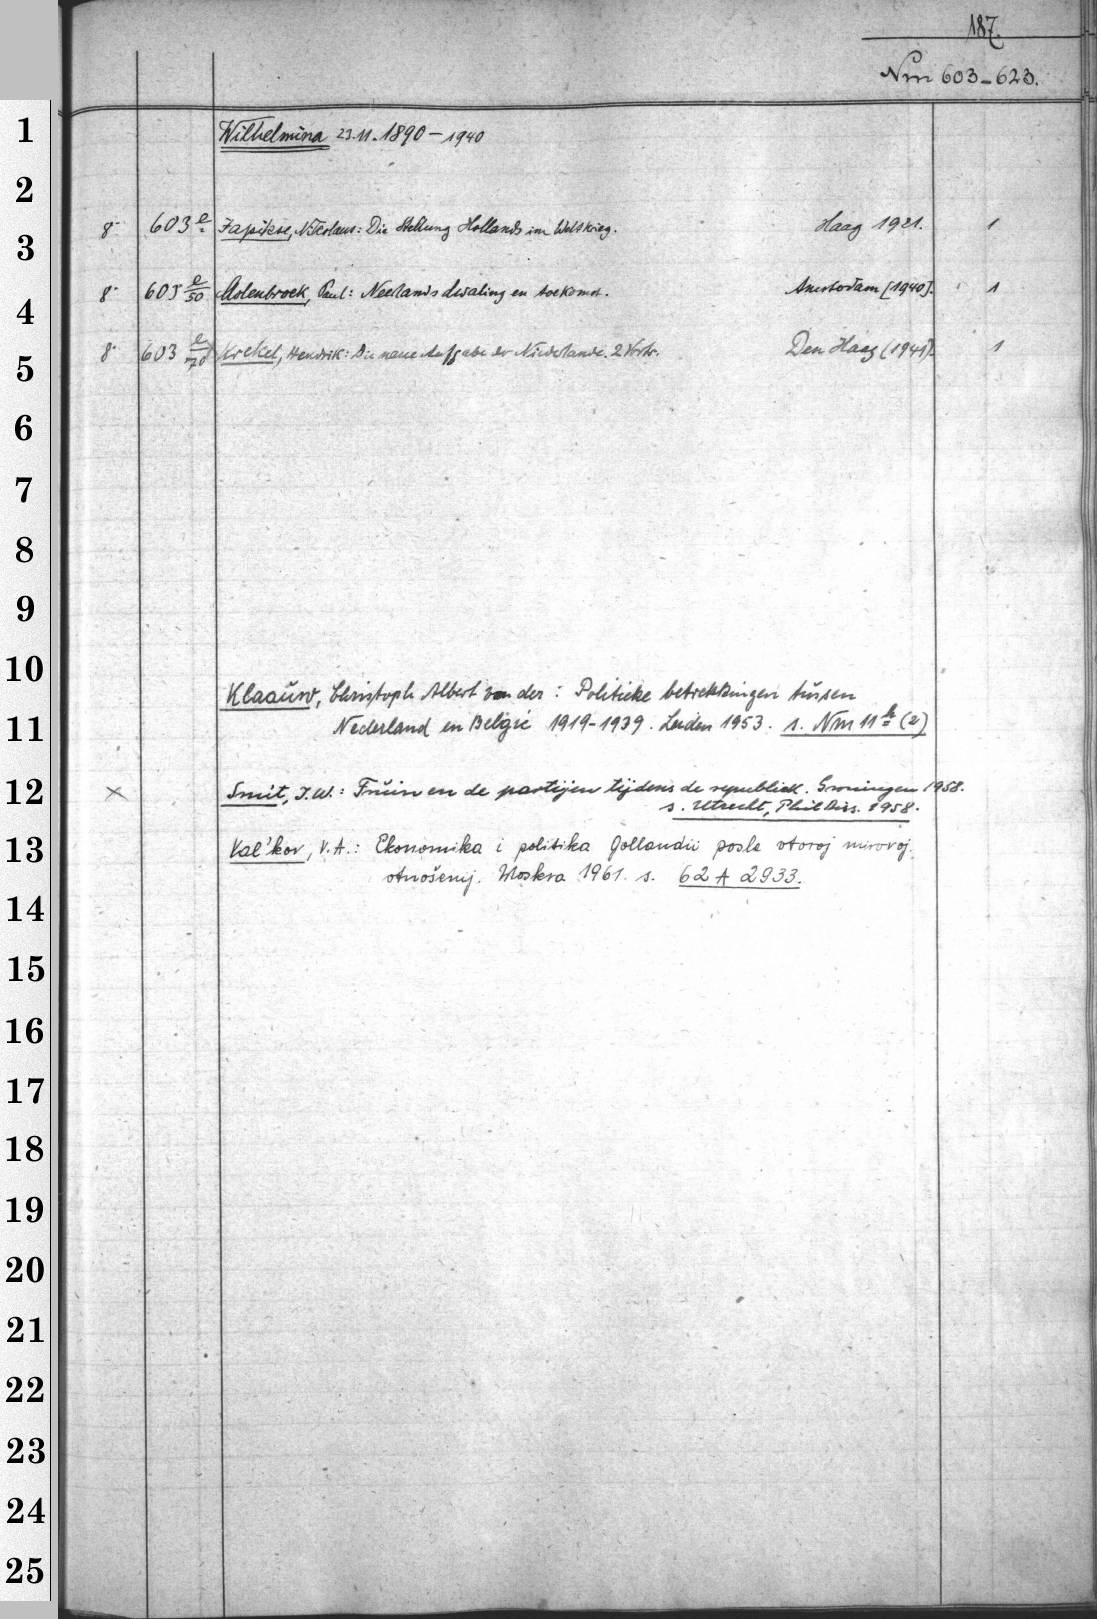 187.
Nm 603-623.
1
Wilhelmina 23.11.1890-1940
2
8° 603 e Japikse, Nikolaus: Die Stellung Hollands im Weltkrieg. Haag 1921. 1
3
8° 603 e/50 Molenbroek, Paul: Neerlands dwaling en toekomst. Amsterdam [1940]. 1
4
8° 603 e/70 Krekel, Hendrik: Die neue Aufgabe der Niederlande. 2 Vortr. Den Haag (1941). 1
5
6
7
8
9
10
Klaauw, Christoph Albert van der: Politieke betrekkingen tussen
11
Nederland en België 1919-1939. Leiden 1953. s. Nm 11 h (2)
12
× Smit, J.W.: Fruin en de partijen tijdens de republiek. Groningen 1958.
s. Utrecht, Phil Diss. 1958.
13
Val'kov, V.A.: Ekonomika i politika Gollandii posle vtoroj mirovoj
otnošenij. Moskva 1961. s. 62 A 2933.
14
15
16
17
18
19
20
21
22
23
24
25